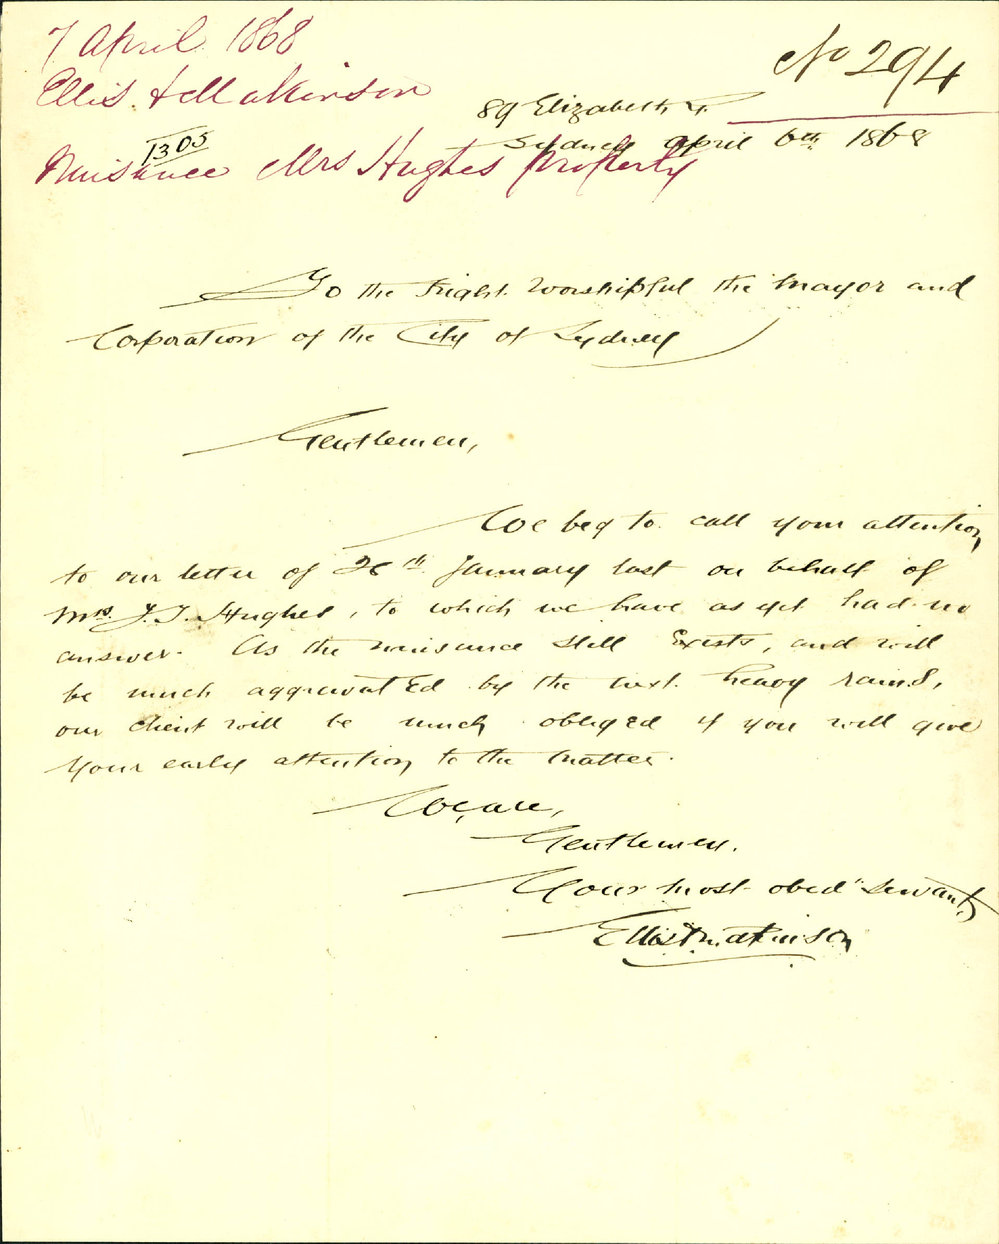 7 April 1868
No 294
Ellis & Makinson
89 Elizabeth St
Sydney April 6th 1868
1305
Nuisance Mrs Hughes property
To the Right Worshipful the Mayor and
Corporation of the City of Sydney
Gentlemen,
We beg to call your attention
to our letter of 26th January last on behalf of
Mrs J. T. Hughes, to which we have as yet had no
answer. As the nuisance still Exists, and will
be much aggravatEd by the next heavy rains,
our client will be much obligEd if you will give
your early attention to the matter.
We are,
Gentlemen.
Your most obedt Servants,
Ellis & Makinson